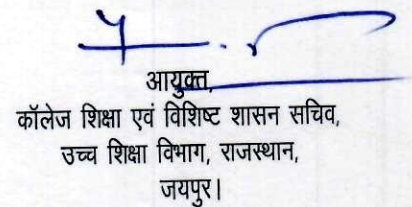 आयुक्त,
कॉलेज शिक्षा एवं विशिष्ट शासन सचिव,
उच्च शिक्षा विभाग, राजस्थान,
जयपुर।